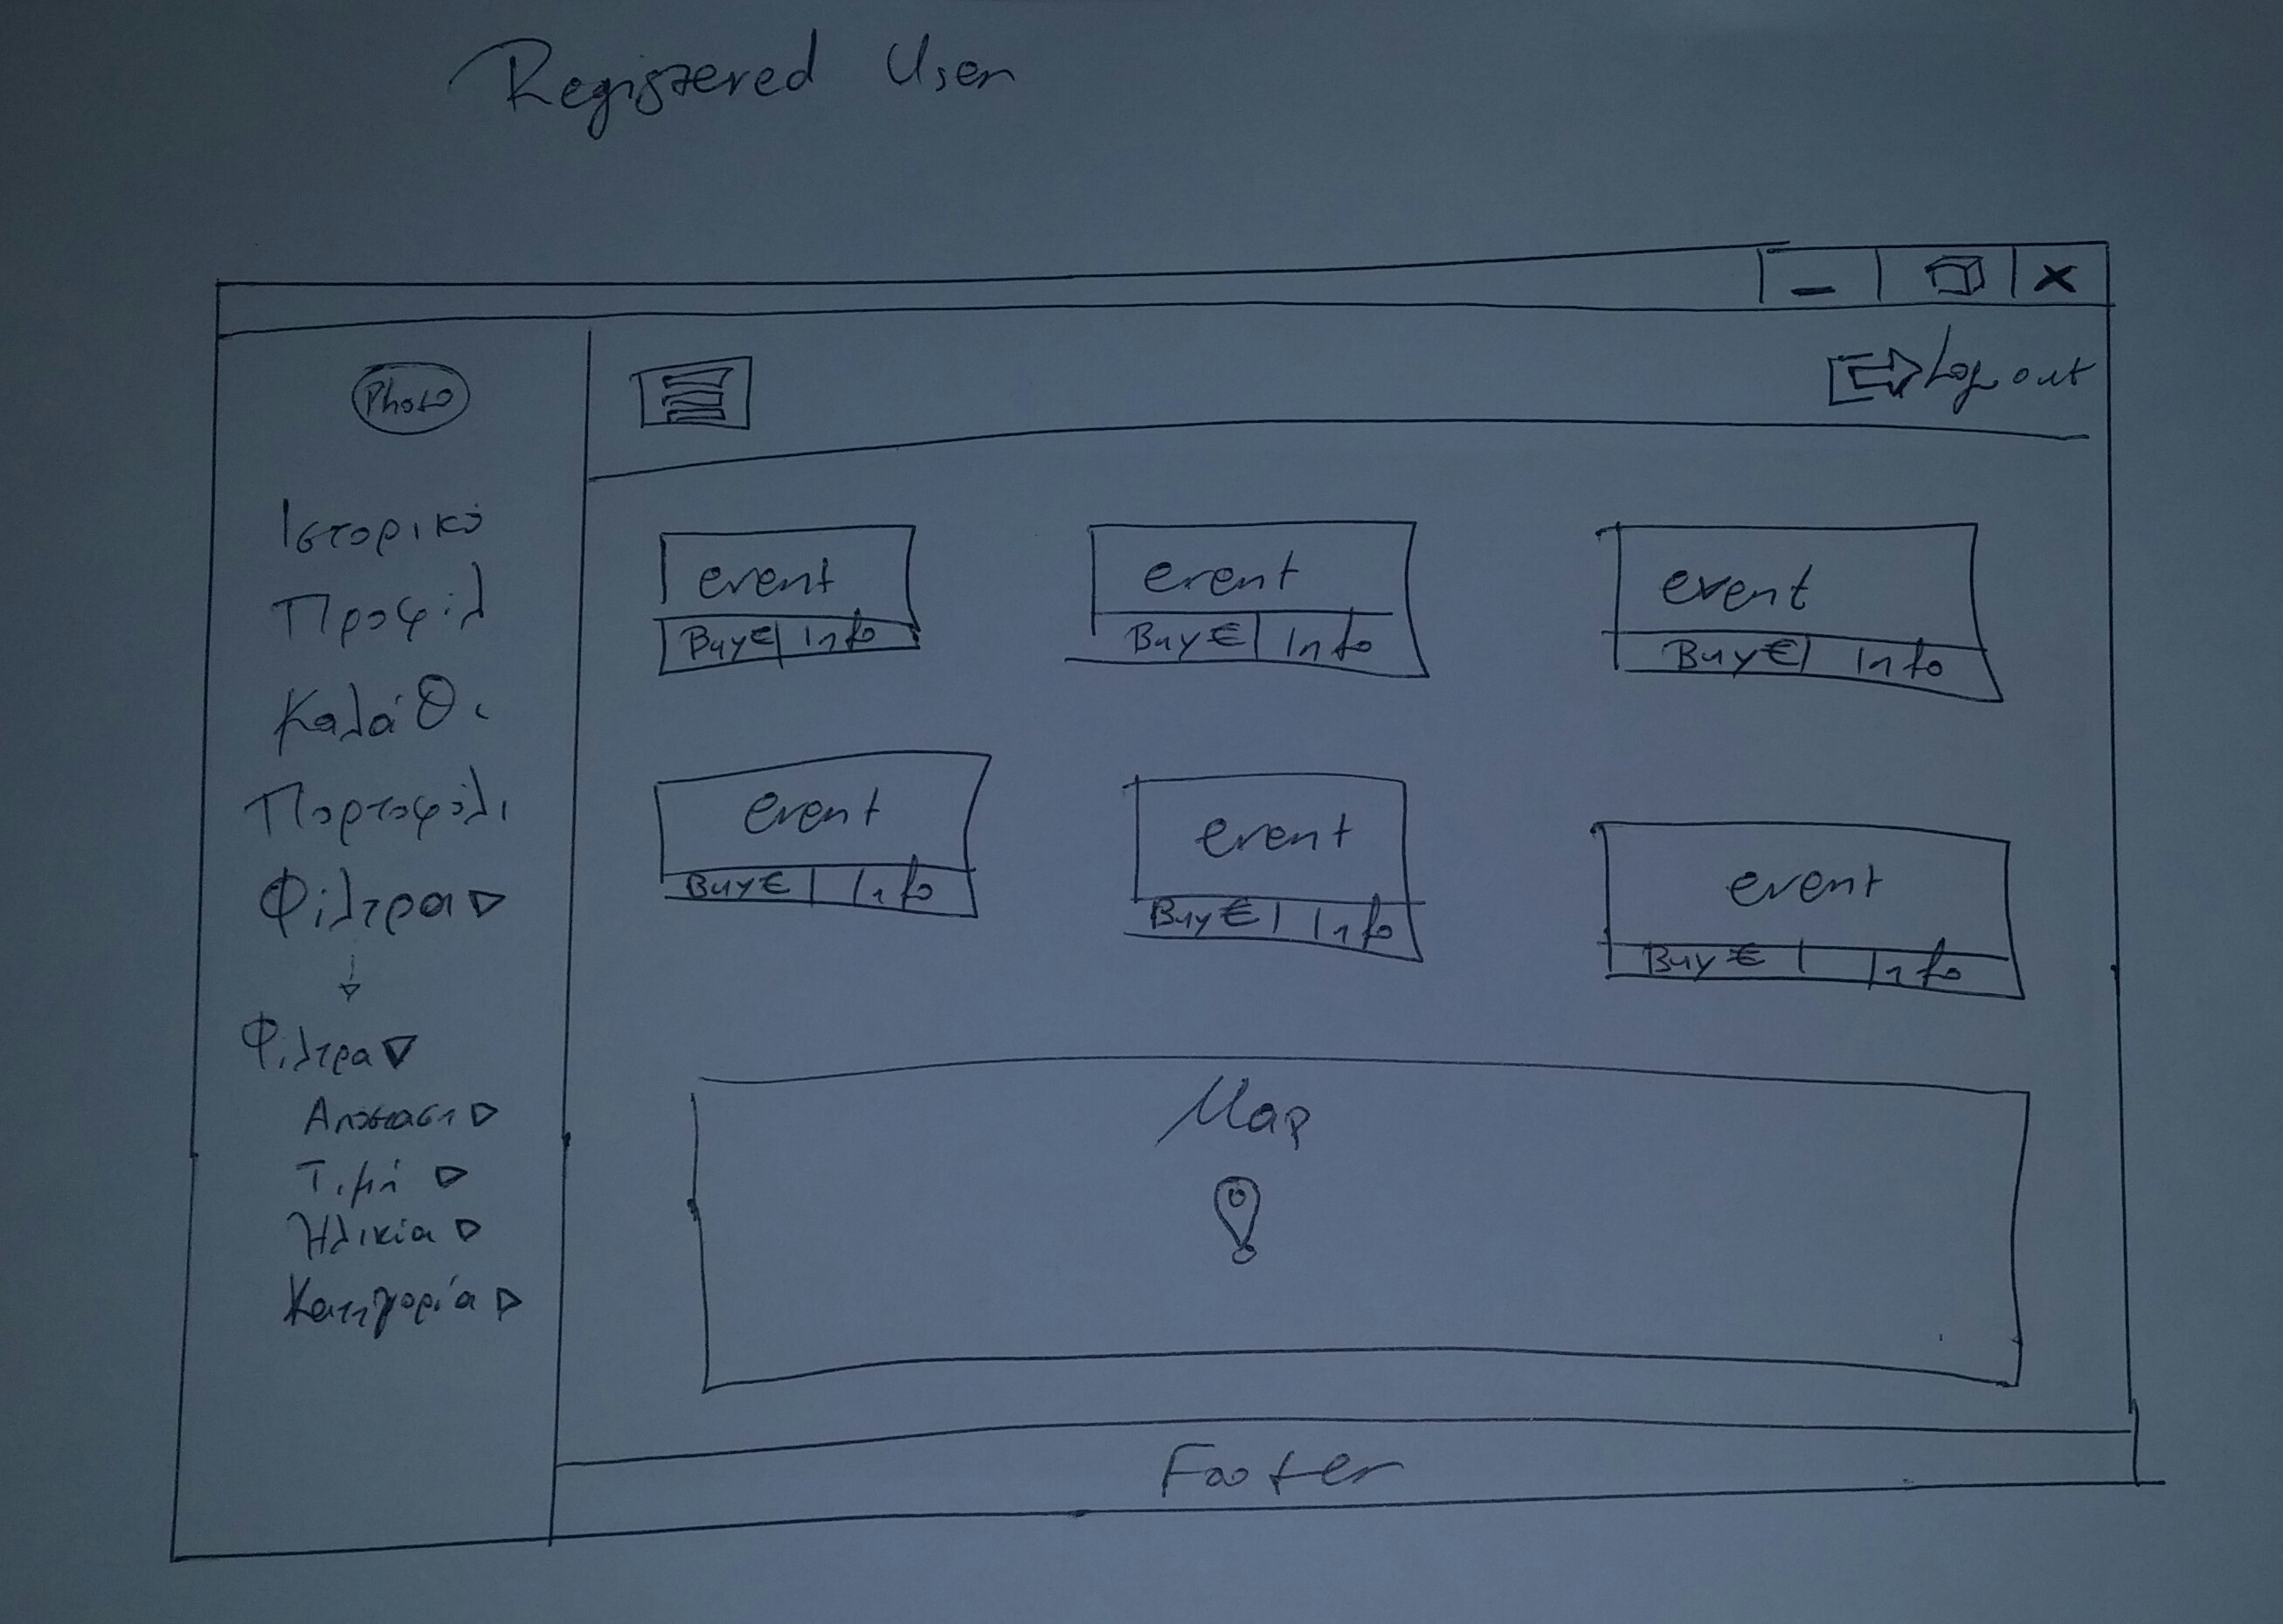 Registered User
Photo
Log out
Ιστορικό
Προφίλ
Καλάθι
Πορτοφόλι
Φίλτρα
Φίλτρα
Απόσταση
Τιμή
Ηλικία
Κατηγορία
event
Buy € Info
event
Buy € Info
event
Buy € Info
event
Buy € Info
event
Buy € Info
event
Buy € Info
Map
Footer